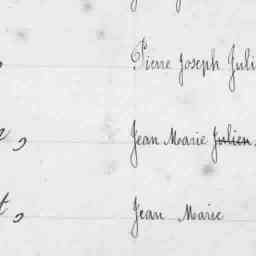 Pierre Joseph Juli
Jean Marie Julien.
t, Jean Marie